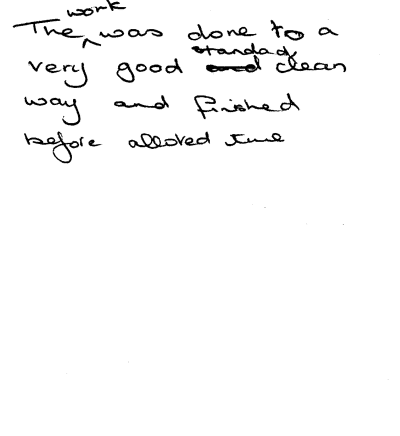 The work was done to a
very good standad clean
way and finished
before alloved time